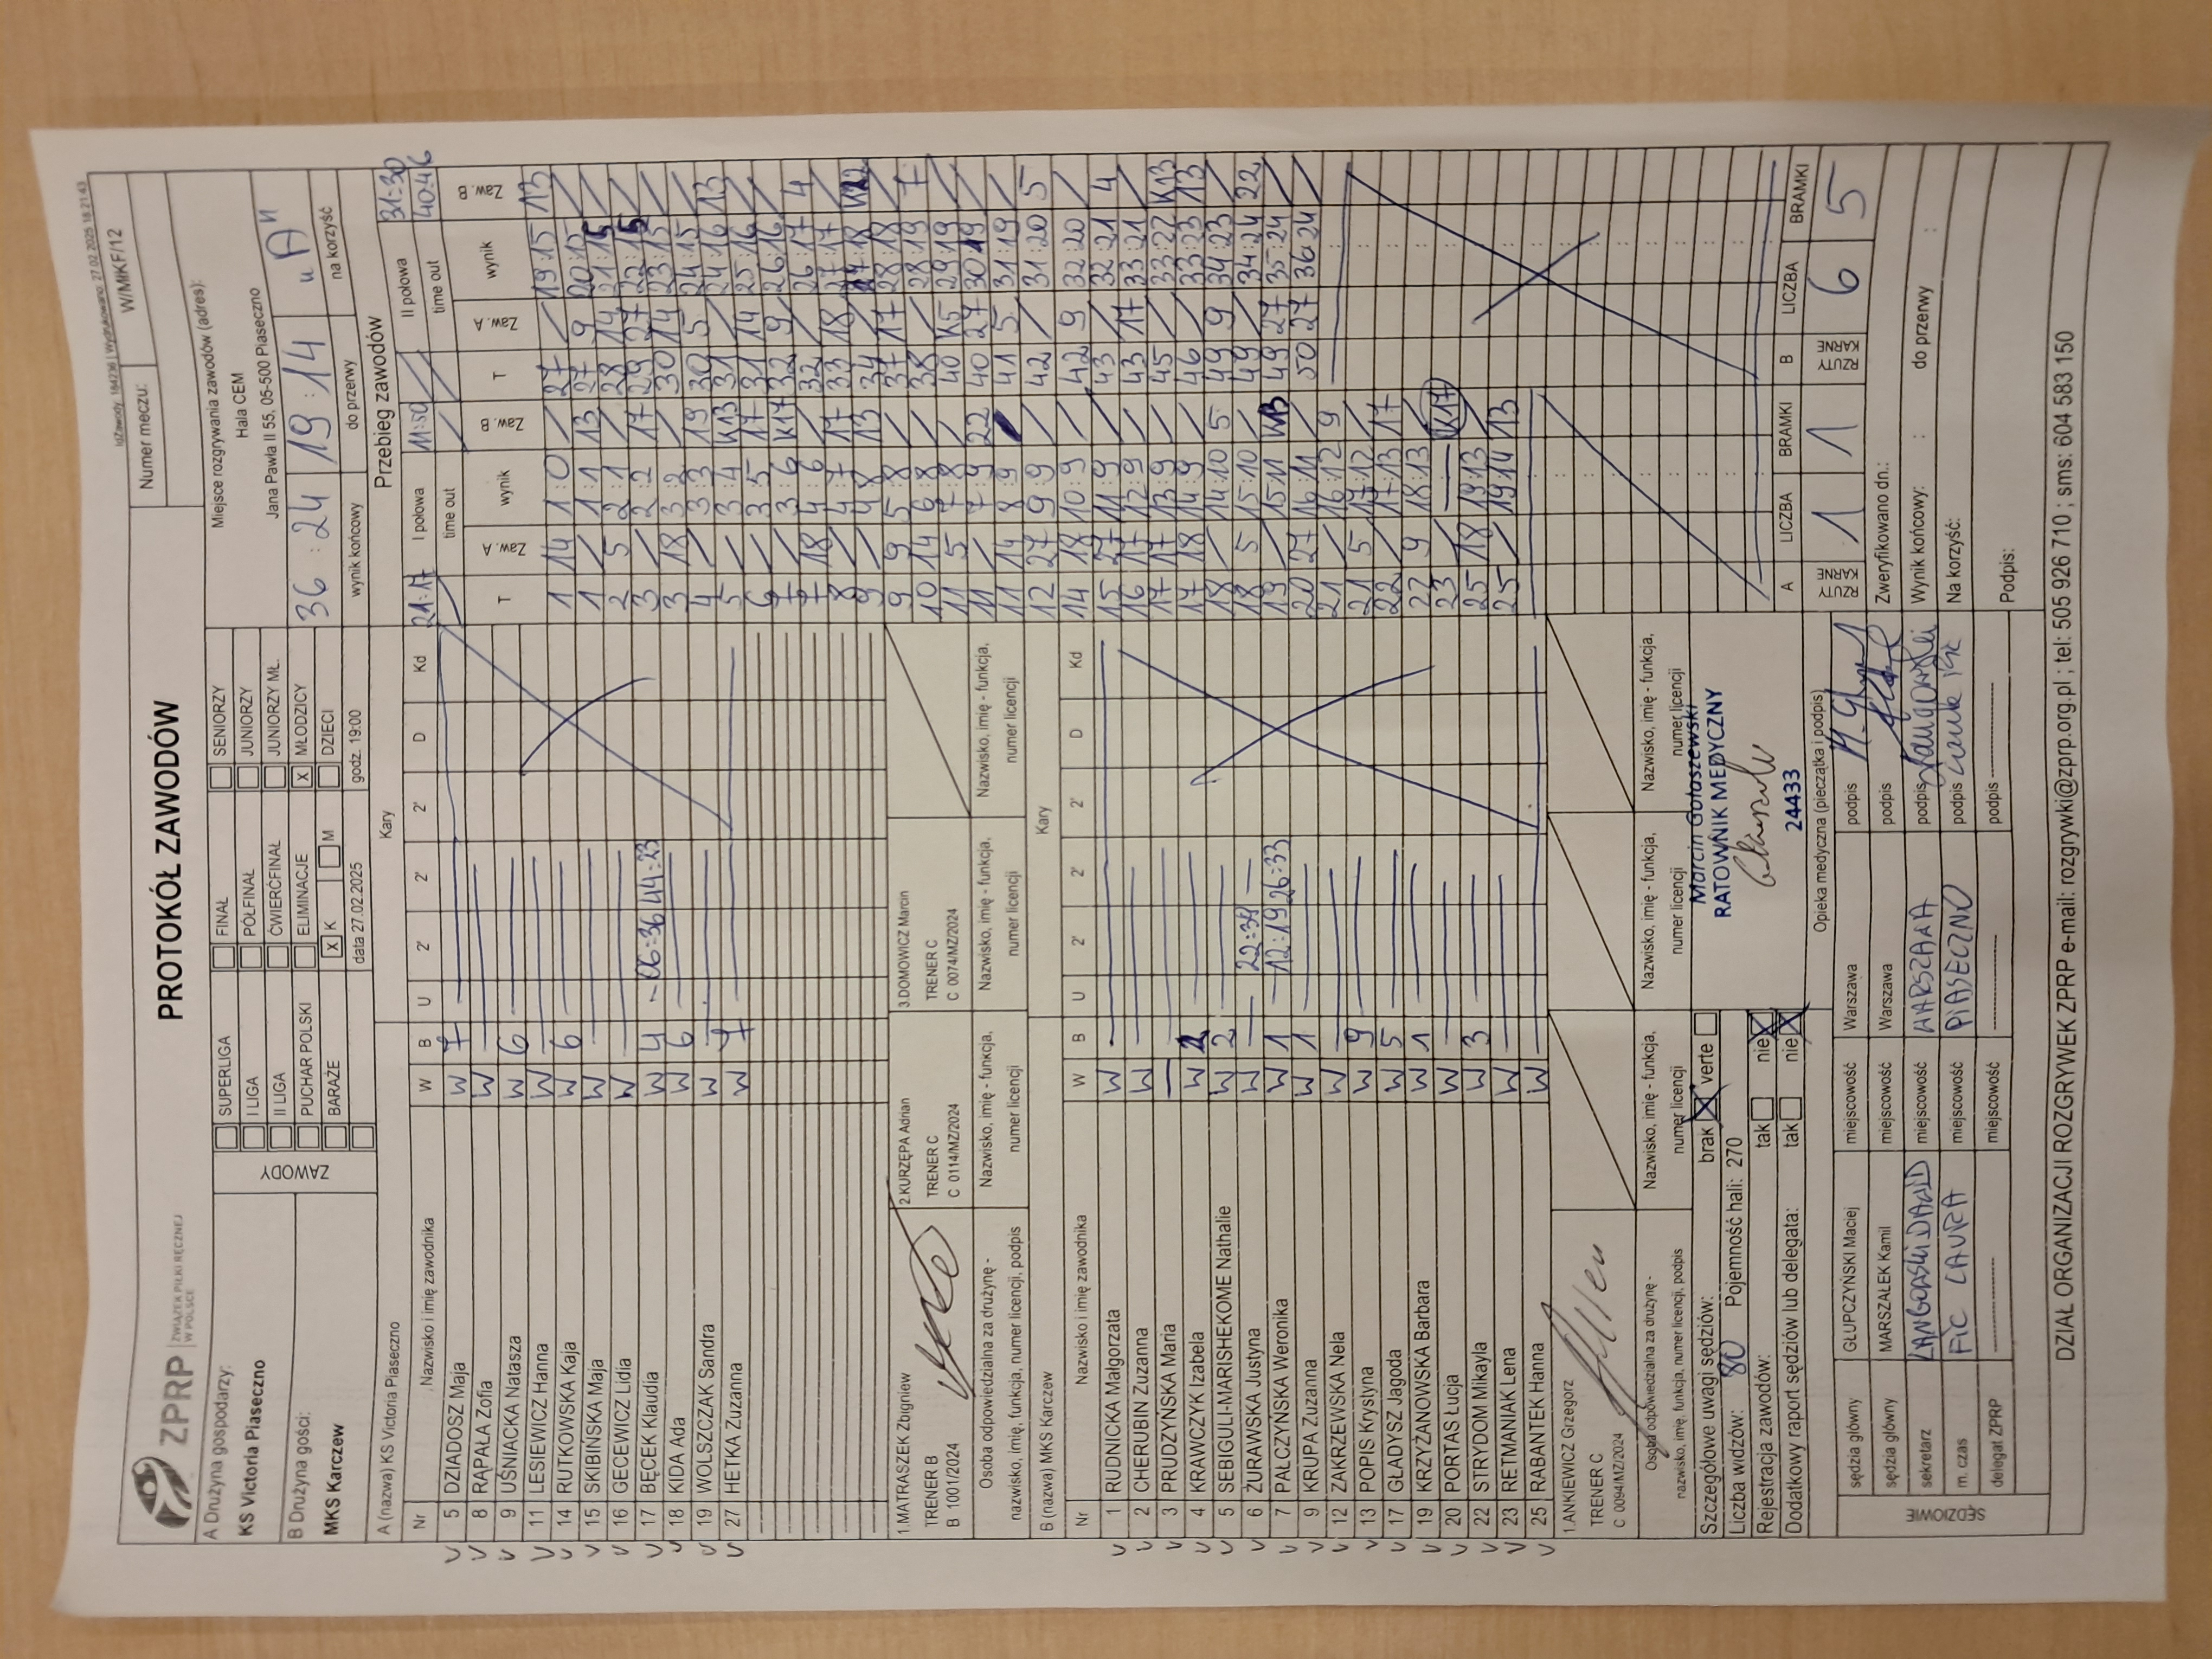 IdZawody: 184236 | Wydrukowano: 27.02.2025 18:21:43
ZPRP ZWIĄZEK PIŁKI RĘCZNEJ W POLSCE
PROTOKÓŁ ZAWODÓW
Numer meczu: W/MMKF/12
A Drużyna gospodarzy:
KS Victoria Piaseczno
B Drużyna gości:
MKS Karczew
ZAWODY
SUPERLIGA
I LIGA
II LIGA
PUCHAR POLSKI
BARAŻE
FINAŁ
PÓŁFINAŁ
ĆWIERĆFINAŁ
ELIMINACJE
X K M
SENIORZY
JUNIORZY
JUNIORZY MŁ.
X MŁODZICY
DZIECI
data 27.02.2025 godz. 19:00
Miejsce rozgrywania zawodów (adres):
Hala CEM
Jana Pawła II 55, 05-500 Piaseczno
36 : 24 19 : 14 "A"
wynik końcowy do przerwy na korzyść
A (nazwa) KS Victoria Piaseczno
Kary
Nr Nazwisko i imię zawodnika W B U 2' 2' 2' D Kd
5 DZIADOSZ Maja W 7
8 RĄPAŁA Zofia W
9 UŚNIACKA Natasza W 6
11 LESIEWICZ Hanna W
14 RUTKOWSKA Kaja W 6
15 SKIBIŃSKA Maja W
16 GECEWICZ Lidia W
17 BĘCEK Klaudia W 4 06:36 44:23
18 KIDA Ada W 6
19 WOLSZCZAK Sandra W
27 HETKA Zuzanna W 7
1.MATRASZEK Zbigniew
TRENER B
B 1001/2024
2.KURZĘPA Adrian
TRENER C
C 0114/MZ/2024
3.DOMOWICZ Marcin
TRENER C
C 0074/MZ/2024
Osoba odpowiedzialna za drużynę -
nazwisko, imię, funkcja, numer licencji, podpis
Nazwisko, imię - funkcja,
numer licencji
Nazwisko, imię - funkcja,
numer licencji
Nazwisko, imię - funkcja,
numer licencji
B (nazwa) MKS Karczew
Kary
Nr Nazwisko i imię zawodnika W B U 2' 2' 2' D Kd
1 RUDNICKA Małgorzata W
2 CHERUBIN Zuzanna W
3 PRUDZYŃSKA Maria
4 KRAWCZYK Izabela W 2
5 SEBIGULI-MARISHEKOME Nathalie W 2
6 ŻURAWSKA Justyna W 22:38
7 PALCZYŃSKA Weronika W 1 12:19 26:33
9 KRUPA Zuzanna W 1
12 ZAKRZEWSKA Nela W
13 POPIS Krystyna W 9
17 GŁADYSZ Jagoda W 5
19 KRZYŻANOWSKA Barbara W 1
20 PORTAS Łucja W
22 STRYDOM Mikayla W 3
23 RETMANIAK Lena W
25 RABANTEK Hanna W
1.ANKIEWICZ Grzegorz
TRENER C
C 0094/MZ/2024
Osoba odpowiedzialna za drużynę -
nazwisko, imię, funkcja, numer licencji, podpis
Nazwisko, imię - funkcja,
numer licencji
Nazwisko, imię - funkcja,
numer licencji
Nazwisko, imię - funkcja,
numer licencji
Szczegółowe uwagi sędziów: brak verte
Liczba widzów: 80 Pojemność hali: 270
Rejestracja zawodów: tak nie
Dodatkowy raport sędziów lub delegata: tak nie
Marcin Gołaszewski
RATOWNIK MEDYCZNY
24433
Opieka medyczna (pieczątka i podpis)
SĘDZIOWIE
sędzia główny GŁUPCZYŃSKI Maciej miejscowość Warszawa podpis
sędzia główny MARSZAŁEK Kamil miejscowość Warszawa podpis
sekretarz LANGOWSKI DAWID miejscowość WARSZAWA podpis
m. czas FIC LAURA miejscowość PIASECZNO podpis
delegat ZPRP miejscowość podpis
Przebieg zawodów
21:17 I połowa 11:50 II połowa 31:30
time out time out 40:46
T Zaw. A wynik Zaw. B T Zaw. A wynik Zaw. B
1 14 1:0 / 27 / 19:15 13
1 / 1:1 13 27 9 20:15 /
2 5 2:1 / 28 14 21:15 /
3 / 2:2 17 29 27 22:15 /
3 18 3:2 / 30 14 23:15 /
4 / 3:3 19 30 5 24:15 /
5 / 3:4 K13 31 / 24:16 13
6 / 3:5 17 31 14 25:16 /
7 / 3:6 K17 32 9 26:16 /
7 18 4:6 / 32 / 26:17 4
8 / 4:7 17 33 18 27:17 /
9 / 4:8 13 34 / 27:18 K22
9 9 5:8 / 37 17 28:18 /
10 14 6:8 / 38 / 28:19 7
11 5 7:8 / 40 K5 29:19 /
11 / 7:9 22 40 27 30:19 /
11 14 8:9 / 41 5 31:19 /
12 27 9:9 / 42 / 31:20 5
14 18 10:9 / 42 9 32:20 /
15 27 11:9 / 43 / 32:21 4
16 17 12:9 / 43 17 33:21 /
17 17 13:9 / 45 / 33:22 K13
17 18 14:9 / 46 / 33:23 13
18 / 14:10 5 49 9 34:23 /
18 5 15:10 / 49 / 34:24 22
19 / 15:11 K13 49 27 35:24 /
20 27 16:11 / 50 27 36:24 /
21 / 16:12 9
21 5 17:12 /
22 / 17:13 17
22 9 18:13 /
23 / — K17
25 18 19:13 /
25 / 19:14 13
A RZUTY KARNE LICZBA 1 BRAMKI 1
B RZUTY KARNE LICZBA 6 BRAMKI 5
Zweryfikowano dn.:
Wynik końcowy: : do przerwy :
Na korzyść:
Podpis:
DZIAŁ ORGANIZACJI ROZGRYWEK ZPRP e-mail: rozgrywki@zprp.org.pl ; tel: 505 926 710 ; sms: 604 583 150